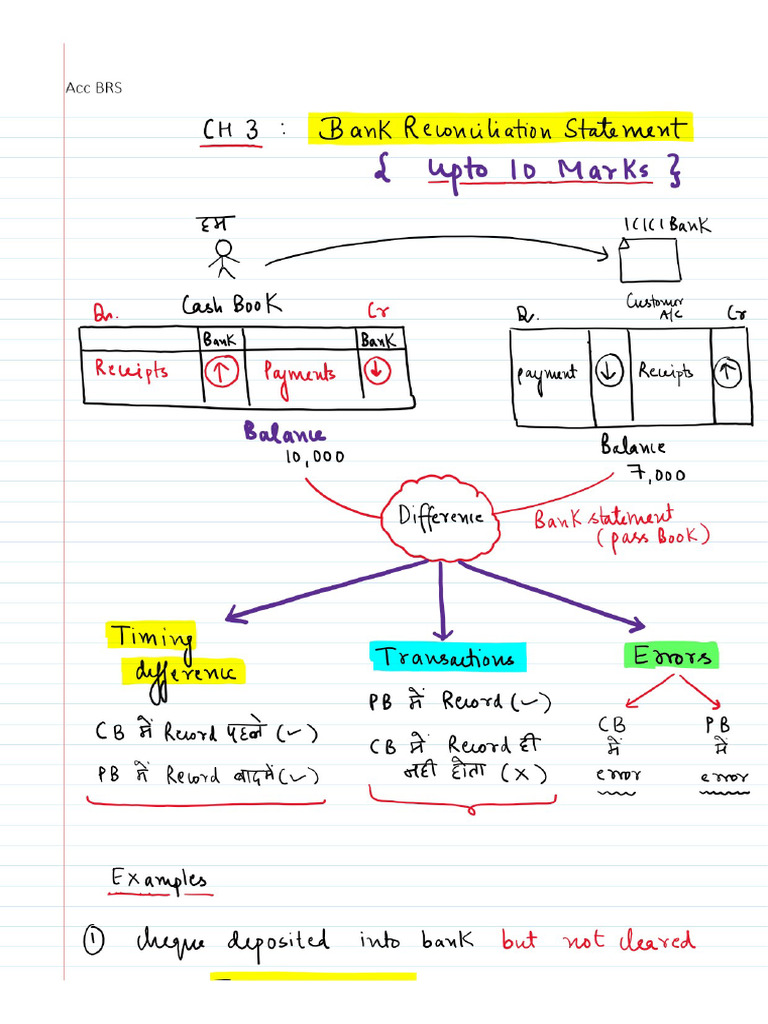 Acc BRS
CH 3 : Bank Reconciliation Statement
{ Upto 10 Marks }
हम
ICICI Bank
Cash Book
Customer A/C
Dr. Cr
Dr. Cr
Bank Bank
Receipts ↑ Payments ↓
payment ↓ Receipts ↑
Balance
10,000
Balance
7,000
Difference
Bank statement
(pass Book)
Timing
difference
CB में Record पहले (✓)
PB में Record बाद में (✓)
Transactions
PB में Record (✓)
CB में Record ही
नही होता (X)
Errors
CB
में
error
PB
में
error
Examples
① cheque deposited into bank but not cleared